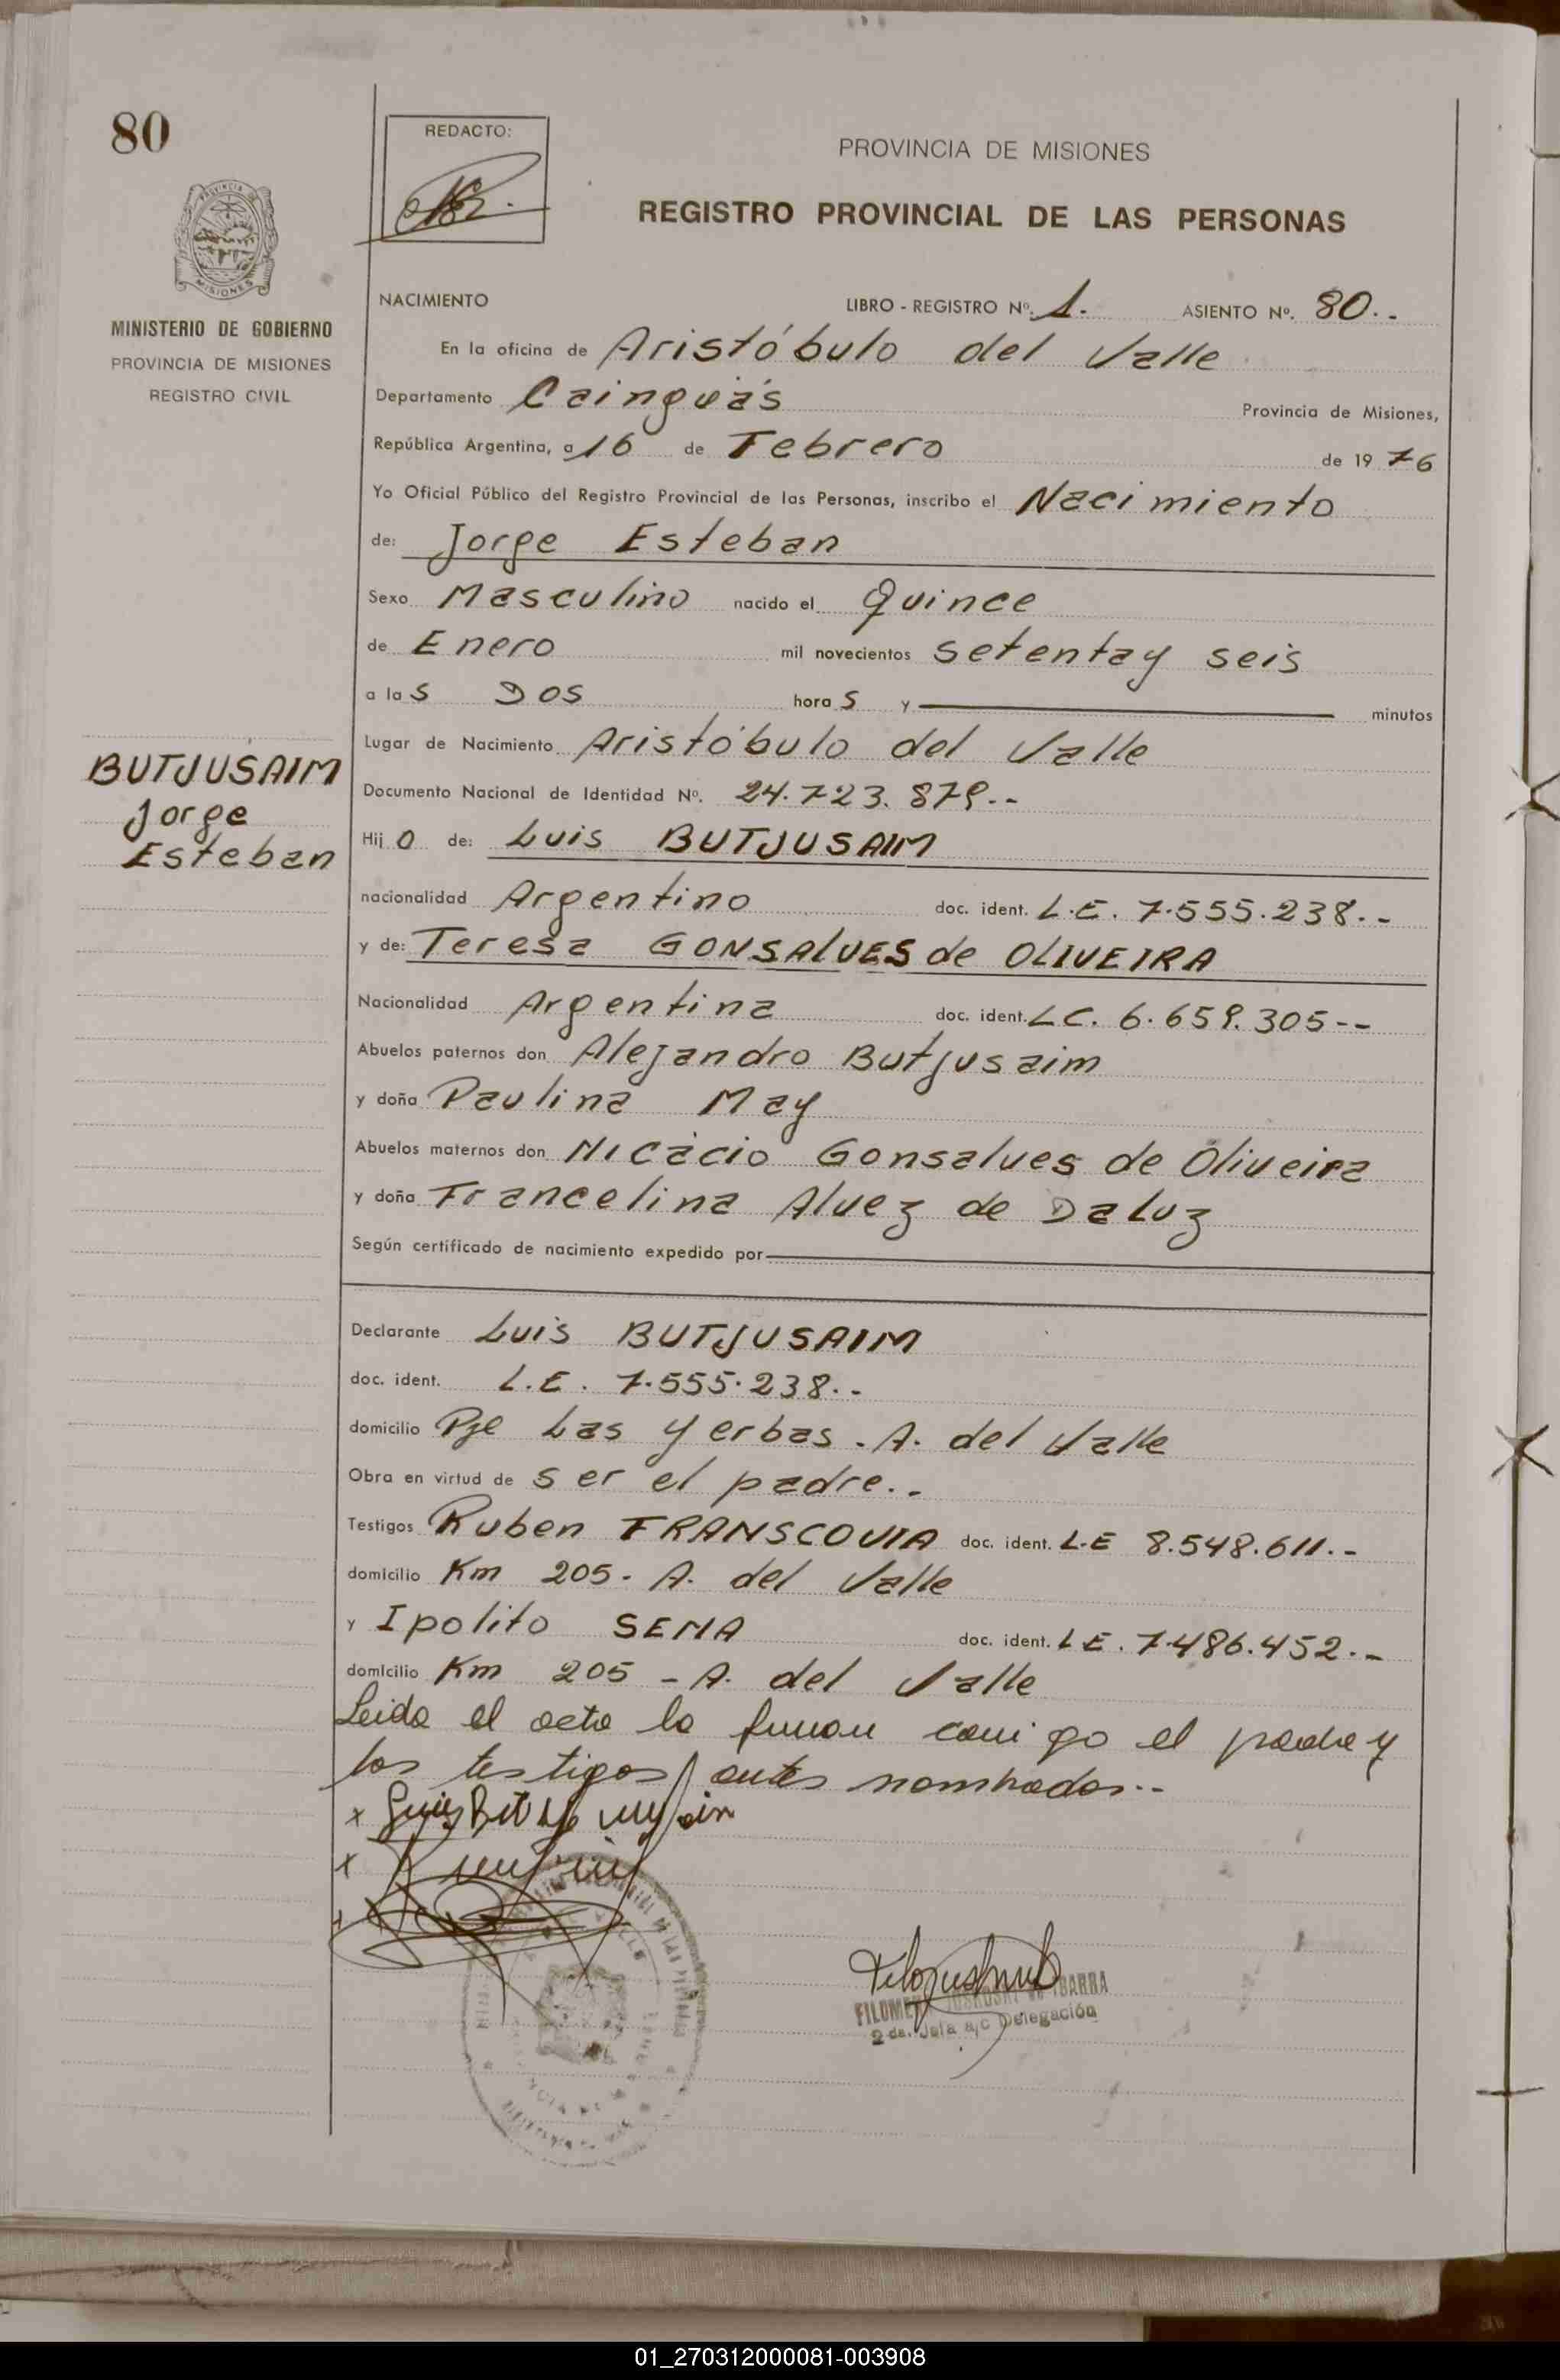 80
REDACTO:
PROVINCIA DE MISIONES
REGISTRO PROVINCIAL DE LAS PERSONAS
PROVINCIA DE
MISIONES
MINISTERIO DE GOBIERNO
PROVINCIA DE MISIONES
REGISTRO CIVIL
NACIMIENTO LIBRO - REGISTRO Nº. 1. ASIENTO Nº. 80.-
En la oficina de Aristóbulo del Valle
Departamento Cainguás Provincia de Misiones,
República Argentina, a 16 de Febrero de 1976
Yo Oficial Público del Registro Provincial de las Personas, inscribo el Nacimiento
de: Jorge Esteban
Sexo Masculino nacido el Quince
de Enero mil novecientos setentay seis
a las Dos horas y minutos
Lugar de Nacimiento Aristóbulo del Valle
BUTJUSAIM
Jorge
Esteban
Documento Nacional de Identidad Nº. 24.723.879.--
Hijo de: Luis BUTJUSAIM
nacionalidad Argentino doc. ident. L.E. 7.555.238.--
y de: Teresa GONSALVES de OLIVEIRA
Nacionalidad Argentina doc. ident. LC. 6.659.305--
Abuelos paternos don Alejandro Butjusaim
y doña Paulina May
Abuelos maternos don Nicácio Gonsalves de Oliveira
y doña Francelina Alvez de Daluz
Según certificado de nacimiento expedido por
Declarante Luis BUTJUSAIM
doc. ident. L.E. 7.555.238.--
domicilio Pje Las Yerbas.A. del Valle
Obra en virtud de ser el padre.-
Testigos Ruben FRANSCOVIA doc. ident. L.E 8.548.611.-
domicilio Km 205. A. del Valle
y Ipolito SENA doc. ident. LE. 7.486.452.--
domicilio Km 205 - A. del Valle
Leida el acta la firman conmigo el padre y
los testigos antes nombrados.--
IBARRA
2 da. Jefa a/c Delegación
01_270312000081-003908